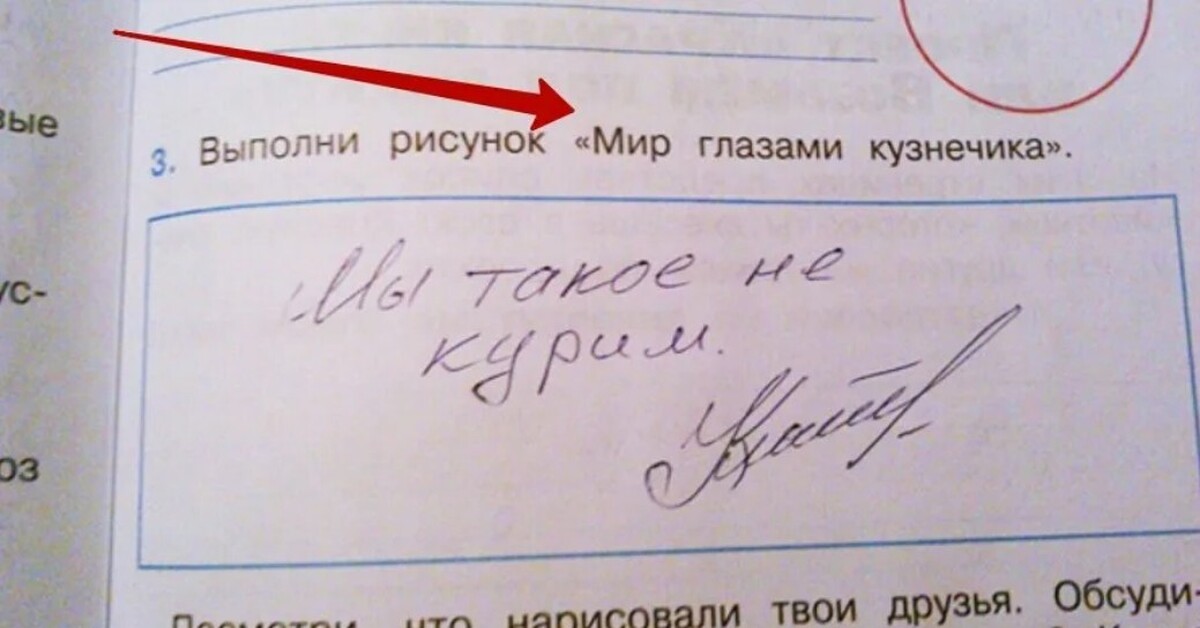 вые
3. Выполни рисунок «Мир глазами кузнечика».
Мы такое не
курим.
ус-
оз
что нарисовали твои друзья. Обсуди-